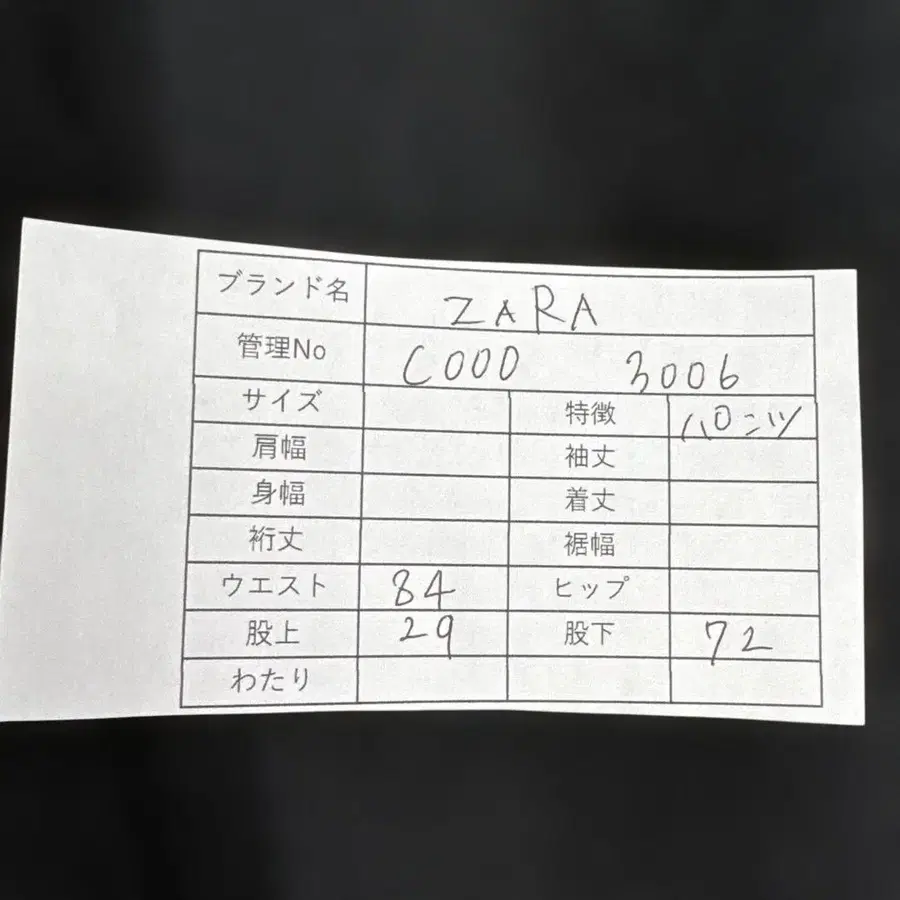 ブランド名 ZARA
管理No C000 3006
サイズ 特徴 パンツ
肩幅 袖丈
身幅 着丈
裄丈 裾幅
ウエスト 84 ヒップ
股上 29 股下 72
わたり